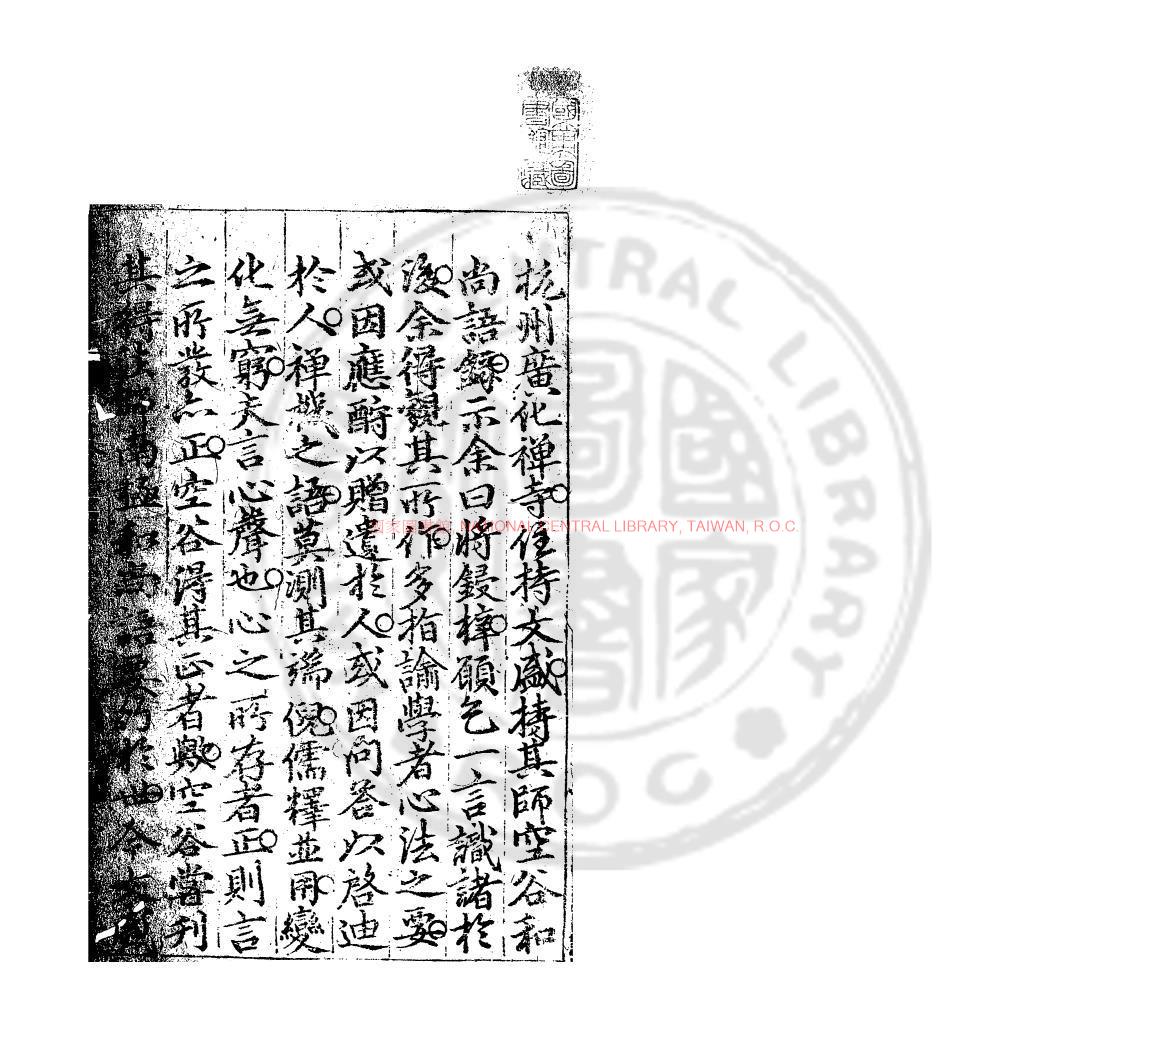 杭州廣化禪寺住持文盛持其師空谷和
尚語錄示余曰將鋟梓願乞一言識諸於
後余得觀其所作多指論學者心法之要
或因應酧以贈遺於人或因問答以啓迪
於人禪機之語莫測其端倪儒釋並用變
化無窮夫言心聲也心之所存者正則言
之所發亦正空谷得其正者歟空谷嘗刋
其得
和尚語要行於世今文盛
國家圖書館 NATIONAL CENTRAL LIBRARY, TAIWAN, R.O.C.
CENTRAL LIBRARY